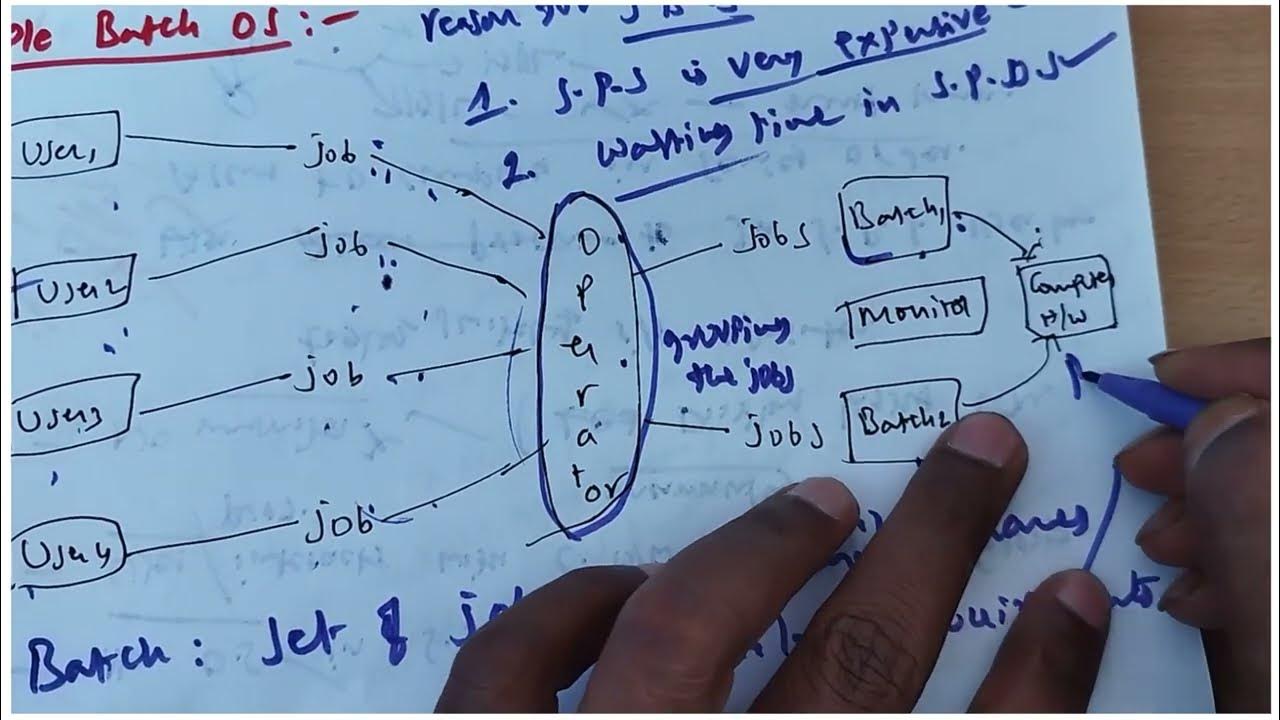 ple Batch OS :-
reason for
1. S.P.S is very expensive
2. waiting time in S.P.D.S
User1 job
User2 job
User3 job
User4 job
Operator
jobs
grouping
the jobs
jobs
Batch1
Monitor
Batch2
Computer
H/W
Batch : Set of